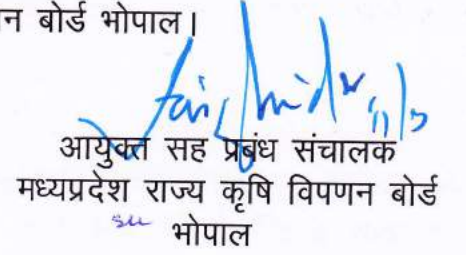 न बोर्ड भोपाल।
आयुक्त सह प्रबंध संचालक
मध्यप्रदेश राज्य कृषि विपणन बोर्ड
भोपाल